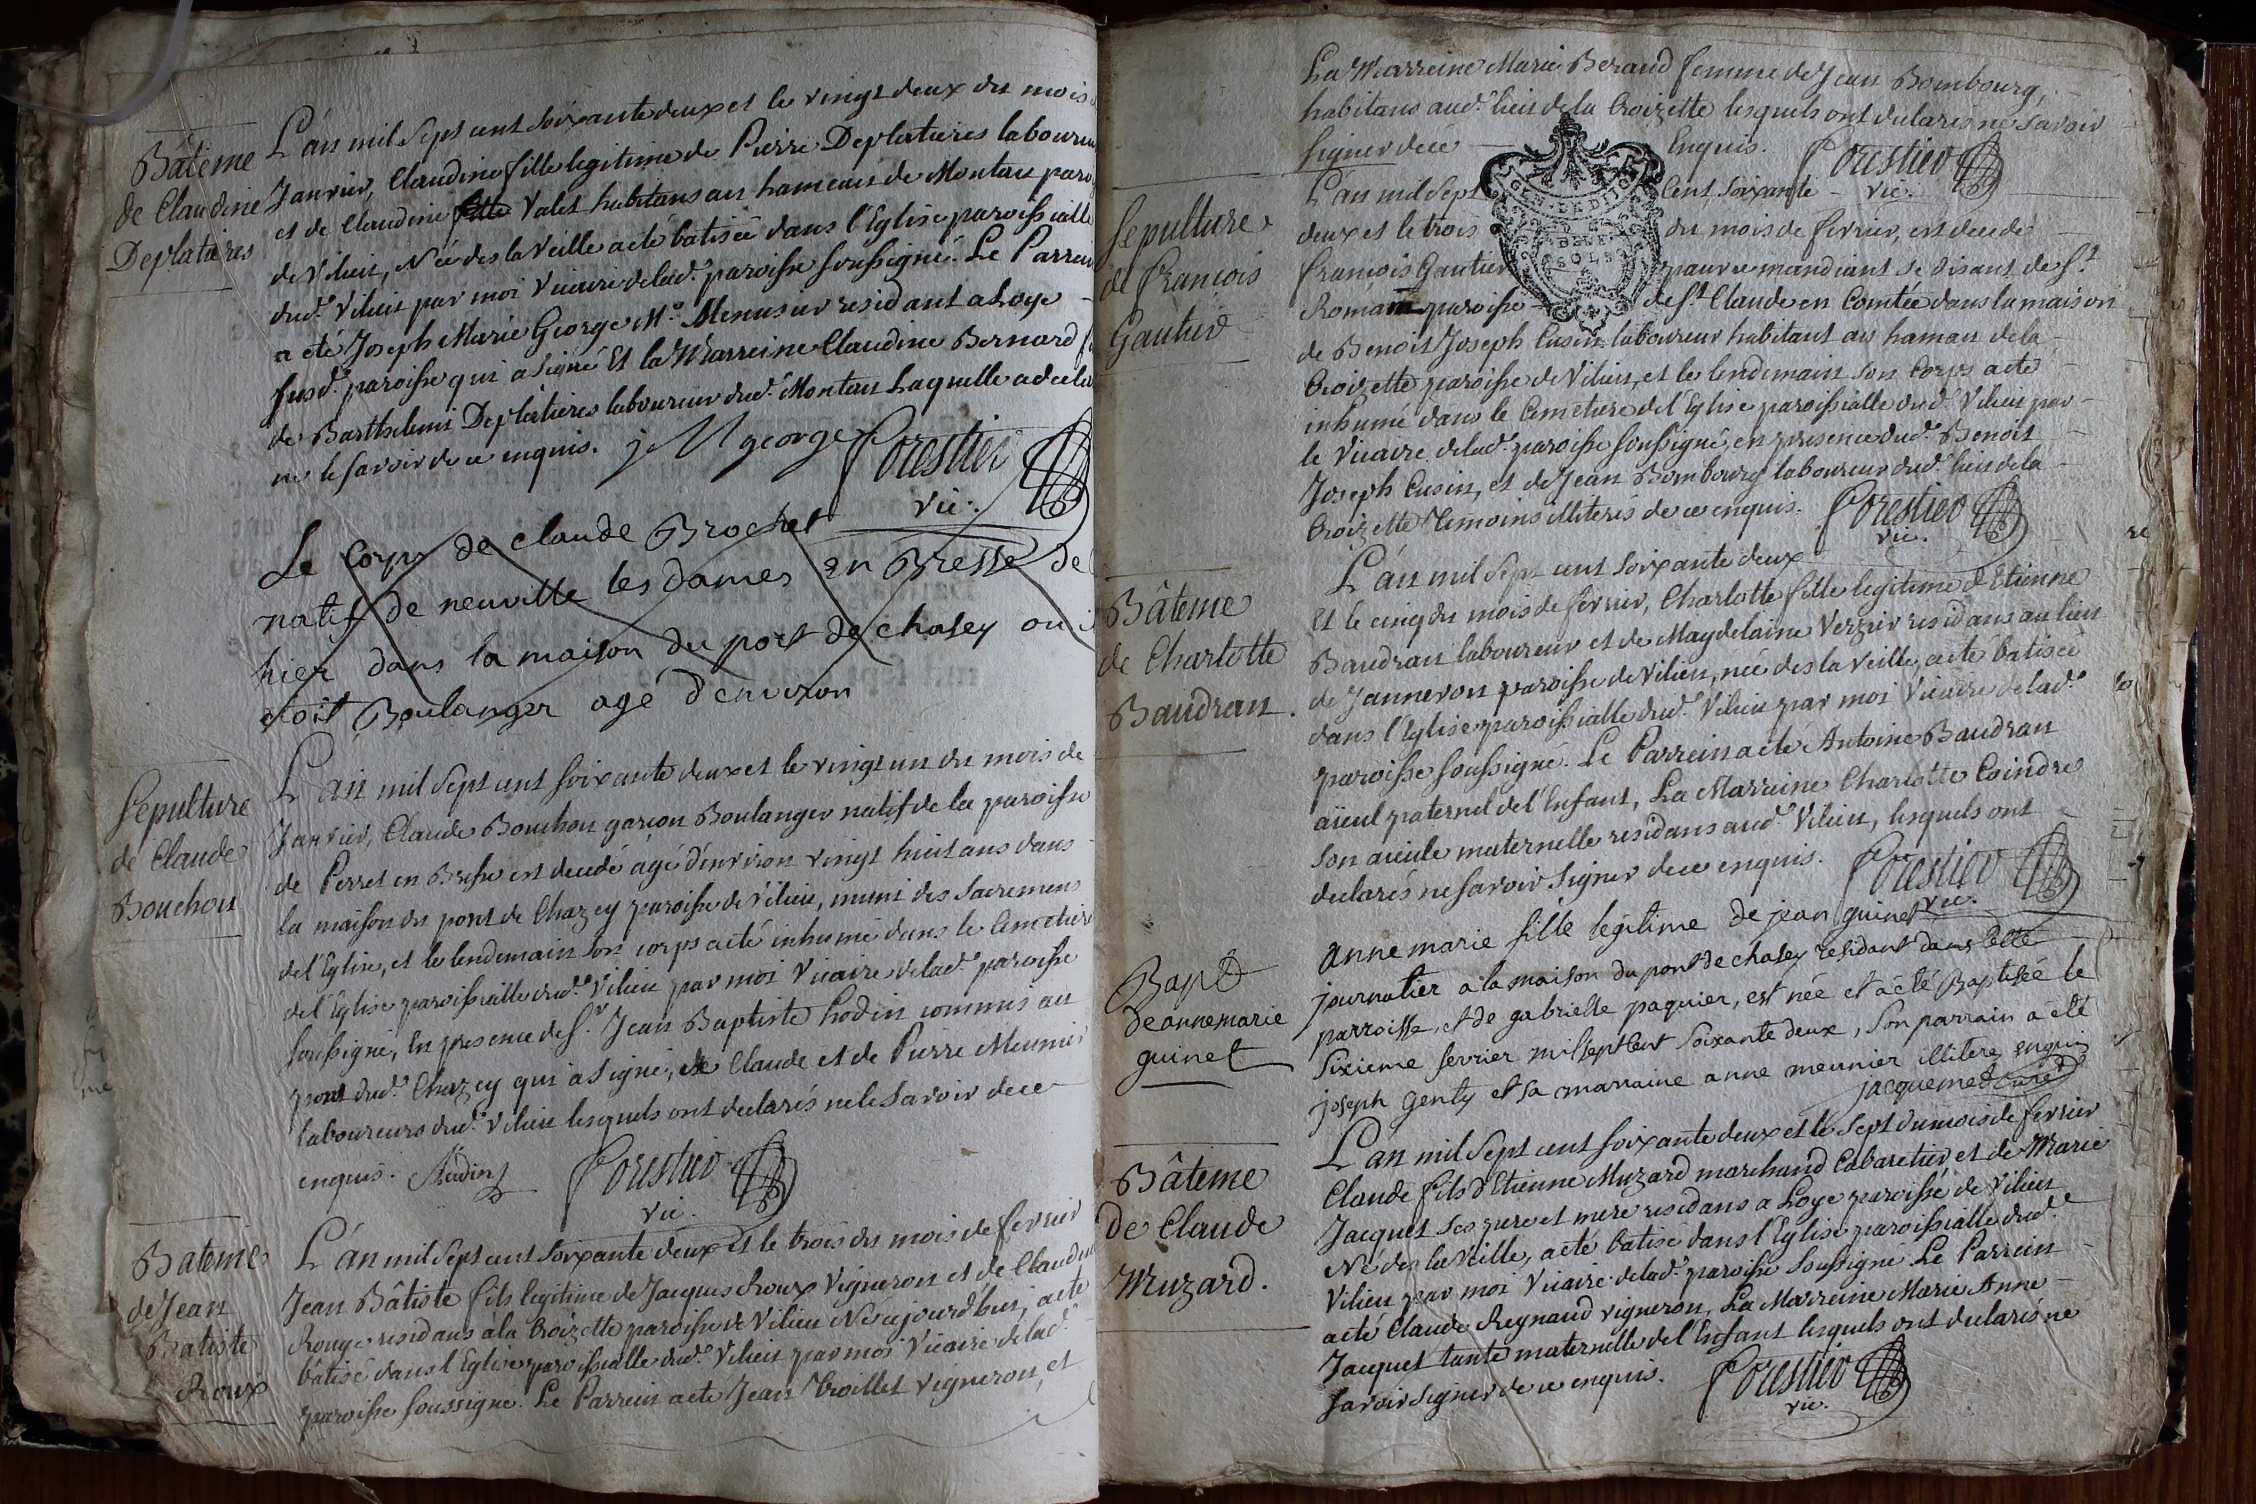 Bâteme
de Claudine
Deplataires
L'an mil sept cent soixante deux et le vingt deux du mois
Janvier, Claudine fille legitime de Pierre Deplatieres laboureur
et de Claudine Valet habitans au hameau de Montau paro
de Vilieu, Née des la veille a eté batisée dans l'Eglise paroissialle
dud. Vilieu par moi Vicaire de lad. paroisse soussigné. Le Parrein
a eté Joseph Marie George M.e Menusier residant a Loye
susd. paroisse qui a signé Et la Marreine Claudine Bernard
de Barthelemi Deplatieres laboureur dud. Montau Laquelle a declaré
ne le savoir de ce enquis. j M george Forestier
vic.
Le Corps de claude Brochet
natif de neuville les dames en Bresse de
hier dans la maison du port de chasey ou i
etoit Boulanger agé d'environ
Sepulture
de Claude
Bouchou
L'an mil sept cent soixante deux et le vingt un du mois de
Janvier, Claude Bouchou garçon Boulanger natif de la paroisse
de Perret en Bresse est decedé agé d'environ vingt huit ans dans
la maison du pont de Chazey paroisse de Vilieu, muni des Sacremens
de l'Eglise, et le lendemain son corps a eté inhumé dans le Cimetiere
de l'Eglise paroissialle dud. Vilieu par moi Vicaire de lad. paroisse
soussigné, En presence de S.r Jean Baptiste hodin commis au
pont dud. Chazey qui a signé, de Claude et de Pierre Meunier
laboureurs dud. Vilieu lesquels ont declarés ne le savoir de ce
enquis. Forestier
vic.
Bateme
de Jean
Batiste
Roux
L'an mil sept cent soixante deux et le trois du mois de fevrier
Jean Bâtiste fils legitime de Jacques Roux Vigneron et de Claudine
Rouge residans à la Croizette paroisse de Vilieu Né aujourd'hui, a eté
bâtisé dans l'Eglise paroissialle dud. Vilieu par moi Vicaire de lad.
paroisse soussigné. Le Parrein a eté Jean Troillet Vigneron, et
La Marreine Marie Beraud femme de Jean Bombourg,
habitans aud. lieu de la Croizette lesquels ont declarés ne savoir
signer de ce Enquis. Forestier
vic.
Sepulture
de François
Gautier
L'an mil sept cent soixante
deux et le trois du mois de fevrier, est decedé
François Gautier pauvre mandiant se disant de S.t
Romain paroisse de S.t Claude en Comtée dans la maison
de Benoit Joseph Cusin laboureur habitant au hamau de la
Croizette paroisse de Vilieu, et le lendemain son Corps a eté
inhumé dans le Cimetiere de l'Eglise paroissialle dud. Vilieu par
le Vicaire de lad. paroisse soussigné, en presence dud. Benoit
Joseph Cusin, et de Jean Bombourg laboureur dud. lieu de la
Croizette Temoins illiterés de ce enquis. Forestier
vic.
Bâteme
de Charlotte
Baudran.
L'an mil sept cent soixante deux
Et le cinq du mois de fevrier, Charlotte fille legitime d'Etienne
Baudran laboureur et de Magdelaine Verzier residans au lieu
de Janneron paroisse de Vilieu, née des la veille, a eté bâtisée
dans l'Eglise paroissialle dud. Vilieu par moi Vicaire de lad.
paroisse soussigné. Le Parrein a eté Antoine Baudran
aïeul paternel de l'Enfant, La Marraine Charlotte Coindre
son aieule maternelle residans aud. Vilieu, lesquels ont
declarés ne savoir signer de ce enquis. Forestier
vic.
Bapt
de anne marie
guinet
anne marie fille legitime de jean guinet
journalier a la maison du pont de chasey residant dans cette
parroisse, et de gabrielle paquier, est née et a été Baptisée le
Sixieme fevrier mil sept Cent Soixante deux, Son parrain a été
joseph genty et sa marraine anne meunier illitere enquis
jacquemet curé
Bâteme
de Claude
Muzard.
L'an mil sept cent soixante deux et le sept du mois de fevrier
Claude fils d'Etienne Muzard marchand Cabaretier et de Marie
Jacquet ses pere et mere residans a Loye paroisse de Vilieu
Né des la Veille, a eté batisé dans l'Eglise paroissialle dud.
Vilieu par moi Vicaire de lad. paroisse Soussigné Le Parrein
a eté Claude Reynaud vigneron, La Marreine Marie Anne
Jacquet tante maternelle de l'Enfant lesquels ont declarés ne
savoir signer de ce enquis. Forestier
vic.